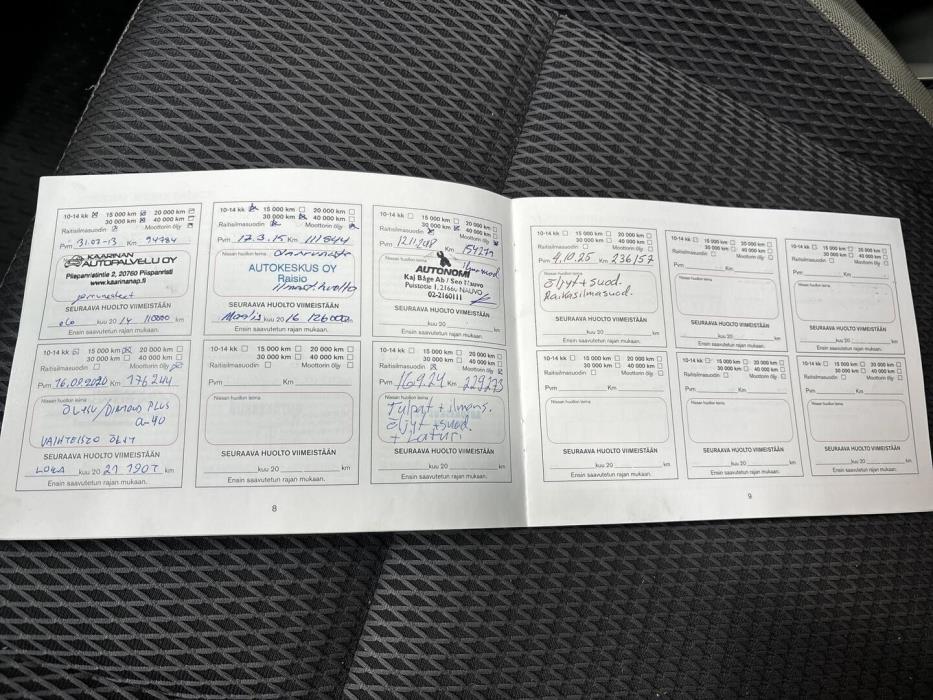 10-14 kk 15 000 km 20 000 km
30 000 km 40 000 km
Raitisilmasuodin Moottorin öljy
Pvm 31.07-13 Km 94784
KAARINAN
AUTOPALVELU OY
Piispanristintie 2, 20760 Piispanristi
www.kaarinanap.fi
SEURAAVA HUOLTO VIIMEISTÄÄN
elo kuu 20 14 110000 km
Ensin saavutetun rajan mukaan.
10-14 kk 15 000 km 20 000 km
30 000 km 40 000 km
Raitisilmasuodin Moottorin öljy
Pvm 17.3.15 Km 111544
Nissan huollon leima
AUTOKESKUS OY
Raisio
SEURAAVA HUOLTO VIIMEISTÄÄN
Maalis kuu 20 16 126000 km
Ensin saavutetun rajan mukaan.
10-14 kk 15 000 km 20 000 km
30 000 km 40 000 km
Raitisilmasuodin Moottorin öljy
Pvm 12.11.2018 Km 154271
Nissan huollon leima
AUTONOMI
Kaj Båge Ab / Sen Nauvo
Puistotie 1, 21660 NAUVO
02-2160111
SEURAAVA HUOLTO VIIMEISTÄÄN
kuu 20 km
Ensin saavutetun rajan mukaan.
10-14 kk 15 000 km 20 000 km
30 000 km 40 000 km
Raitisilmasuodin Moottorin öljy
Pvm 16.09.2020 Km 176244
Nissan huollon leima
ÖLJY/DIMOND PLUS
0-40
VAIHTEISTO ÖLJYT
SEURAAVA HUOLTO VIIMEISTÄÄN
LOKA kuu 20 21 190T km
Ensin saavutetun rajan mukaan.
10-14 kk 15 000 km 20 000 km
30 000 km 40 000 km
Raitisilmasuodin Moottorin öljy
Pvm Km
Nissan huollon leima
SEURAAVA HUOLTO VIIMEISTÄÄN
kuu 20 km
Ensin saavutetun rajan mukaan.
10-14 kk 15 000 km 20 000 km
30 000 km 40 000 km
Raitisilmasuodin Moottorin öljy
Pvm 16.9.24 Km 229273
Nissan huollon leima
Tulpat + ilmans.
öljyt + suod.
+ Laturi
SEURAAVA HUOLTO VIIMEISTÄÄN
kuu 20 km
Ensin saavutetun rajan mukaan.
8
10-14 kk 15 000 km 20 000 km
30 000 km 40 000 km
Raitisilmasuodin Moottorin öljy
Pvm 9.10.25 Km 236157
Nissan huollon leima
öljyt + suod.
Raikasilmasuod.
SEURAAVA HUOLTO VIIMEISTÄÄN
kuu 20 km
Ensin saavutetun rajan mukaan.
10-14 kk 15 000 km 20 000 km
30 000 km 40 000 km
Raitisilmasuodin Moottorin öljy
Pvm Km
Nissan huollon leima
SEURAAVA HUOLTO VIIMEISTÄÄN
kuu 20 km
Ensin saavutetun rajan mukaan.
10-14 kk 15 000 km 20 000 km
30 000 km 40 000 km
Raitisilmasuodin Moottorin öljy
Pvm Km
Nissan huollon leima
SEURAAVA HUOLTO VIIMEISTÄÄN
kuu 20 km
Ensin saavutetun rajan mukaan.
10-14 kk 15 000 km 20 000 km
30 000 km 40 000 km
Raitisilmasuodin Moottorin öljy
Pvm Km
Nissan huollon leima
SEURAAVA HUOLTO VIIMEISTÄÄN
kuu 20 km
Ensin saavutetun rajan mukaan.
10-14 kk 15 000 km 20 000 km
30 000 km 40 000 km
Raitisilmasuodin Moottorin öljy
Pvm Km
Nissan huollon leima
SEURAAVA HUOLTO VIIMEISTÄÄN
kuu 20 km
Ensin saavutetun rajan mukaan.
10-14 kk 15 000 km 20 000 km
30 000 km 40 000 km
Raitisilmasuodin Moottorin öljy
Pvm Km
Nissan huollon leima
SEURAAVA HUOLTO VIIMEISTÄÄN
kuu 20 km
Ensin saavutetun rajan mukaan.
9